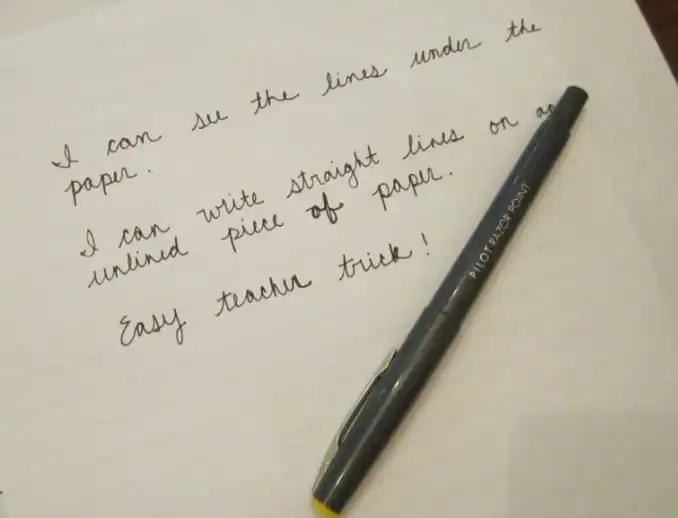 I can see the lines under the
paper.
I can write straight lines on an
unlined piece of paper.
Easy teacher trick!
PILOT RAZOR POINT